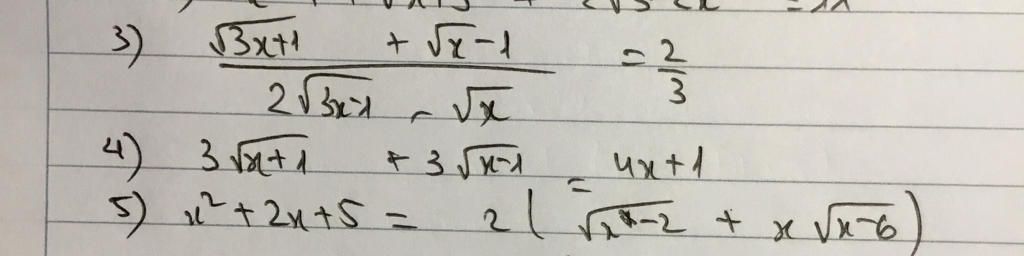 3) (√(3x+1) + √x - 1) / (2√(3x-1) - √x) = 2/3
4) 3√(x+1) + 3√(x-1) = 4x+1
5) x² + 2x + 5 = 2( √(x-2) + x √(x-6) )